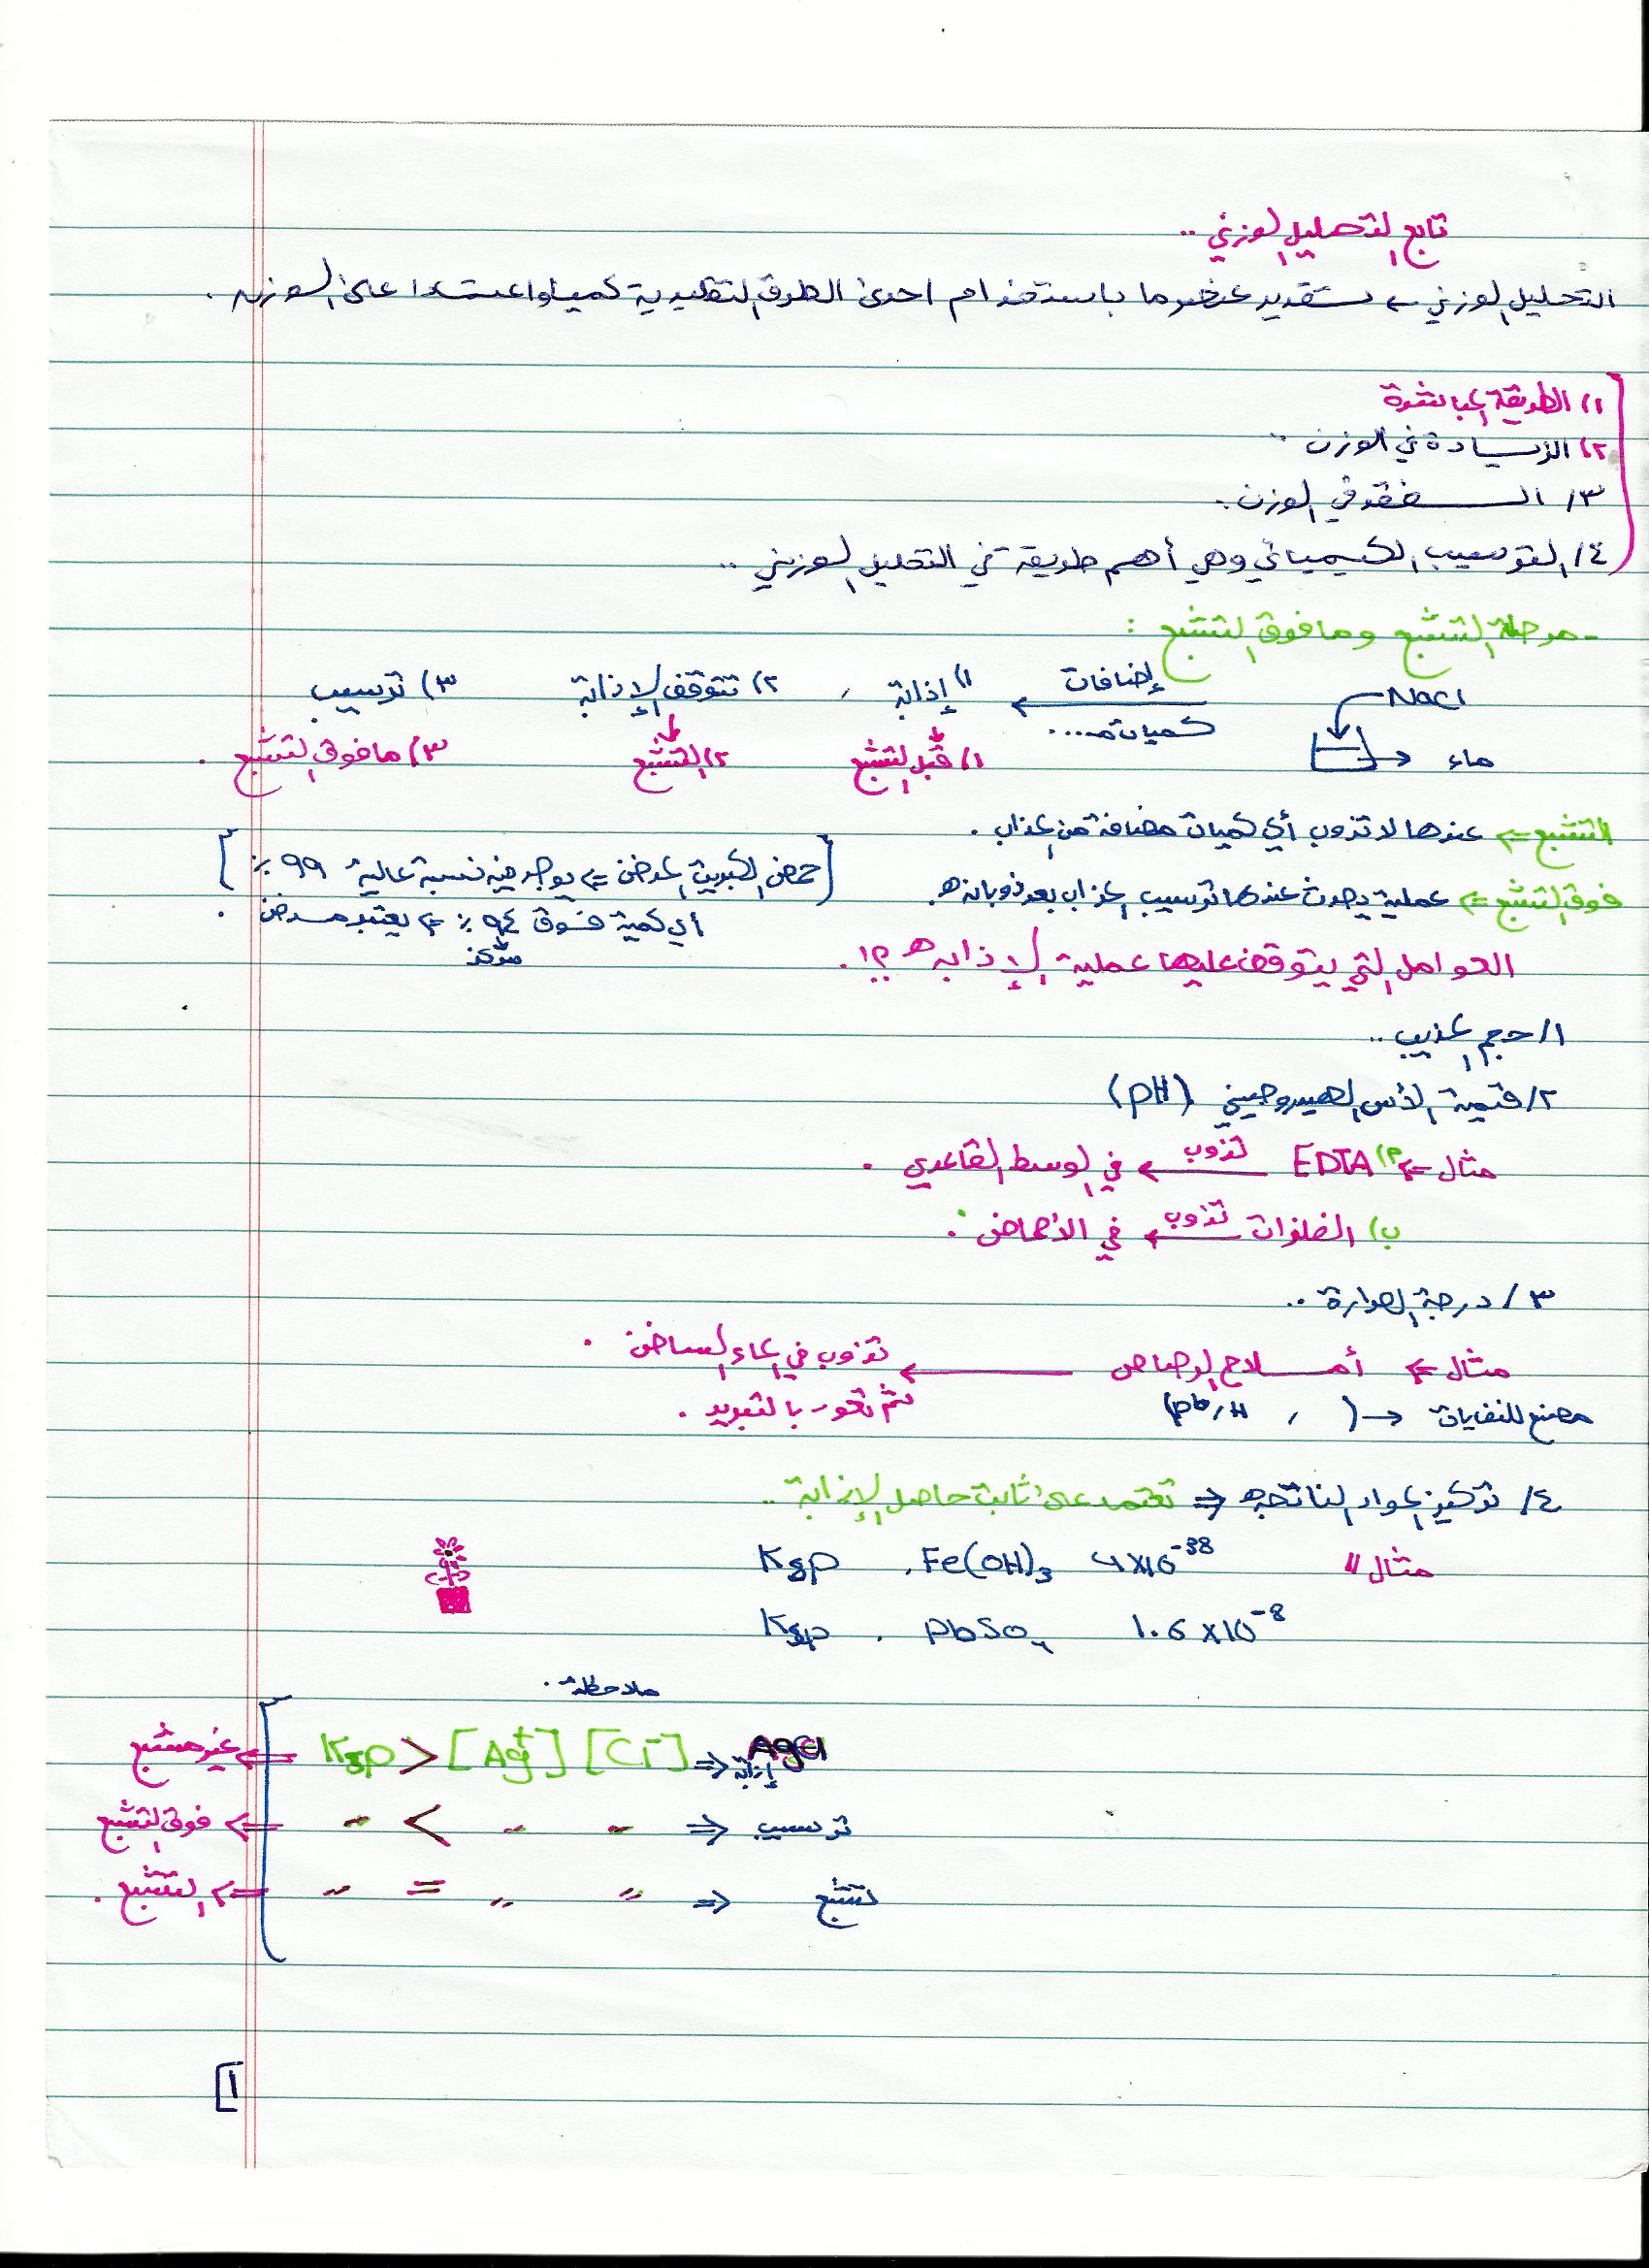 تابع التحليل الوزني ..
التحليل الوزني ← تقدير عنصر ما باستخدام احدى الطرق التقليدية كميا واعتمادا على الوزن .
١) الطريقة المباشرة
٢) الزيادة في الوزن ..
٣/ الفقد في الوزن .
٤/ الترسيب الكيميائي وهي أهم طريقة في التحليل الوزني ..
- مرحلة التشبع وما فوق التشبع :
NaCl إضافات ١) إذابة , ٢) تتوقف الإذابة ٣) ترسيب
ماء ← كميات .... ١) قبل التشبع ٢) التشبع ٣) ما فوق التشبع .
التشبع ⇐ عندها لا تذوب أي كميات مضافة من المذاب .
[حمض الكبريت المركز ⇐ يوجد فيه نسبة عالية ٩٩ ٪]
فوق التشبع ⇐ عملية يحدث عندها ترسيب المذاب بعد ذوبانه .
أي كمية فوق ٩٤ ٪ ⇐ يعتبر حمض مركز .
العوامل التي يتوقف عليها عملية الإذابة ؟! .
١/ حجم المذيب ..
٢/ قيمة الأس الهيدروجيني (pH)
مثال ⇐ أ) EDTA تذوب ← في الوسط القاعدي .
ب) الفلزات تذوب ← في الأحماض .
٣/ درجة الحرارة ..
مثال ⇐ أملاح الرصاص ← تذوب في الماء الساخن .
مصنع للنفايات → ( , ثم تعود بالتبريد .
٤/ تركيز المواد الناتجة ⇒ تعتمد على ثابت حاصل الإذابة ..
مثال // Ksp . Fe(OH)3 4x10-38
Ksp . PbSO4 1.6x10-8
ملاحظة .
غير مشبع ⇐ Ksp > [Ag+] [Cl-] ⇒ إذابة AgCl
فوق التشبع ⇐ " < " " ⇒ ترسيب
التشبع . ⇐ " = " " ⇒ تشبع
١]